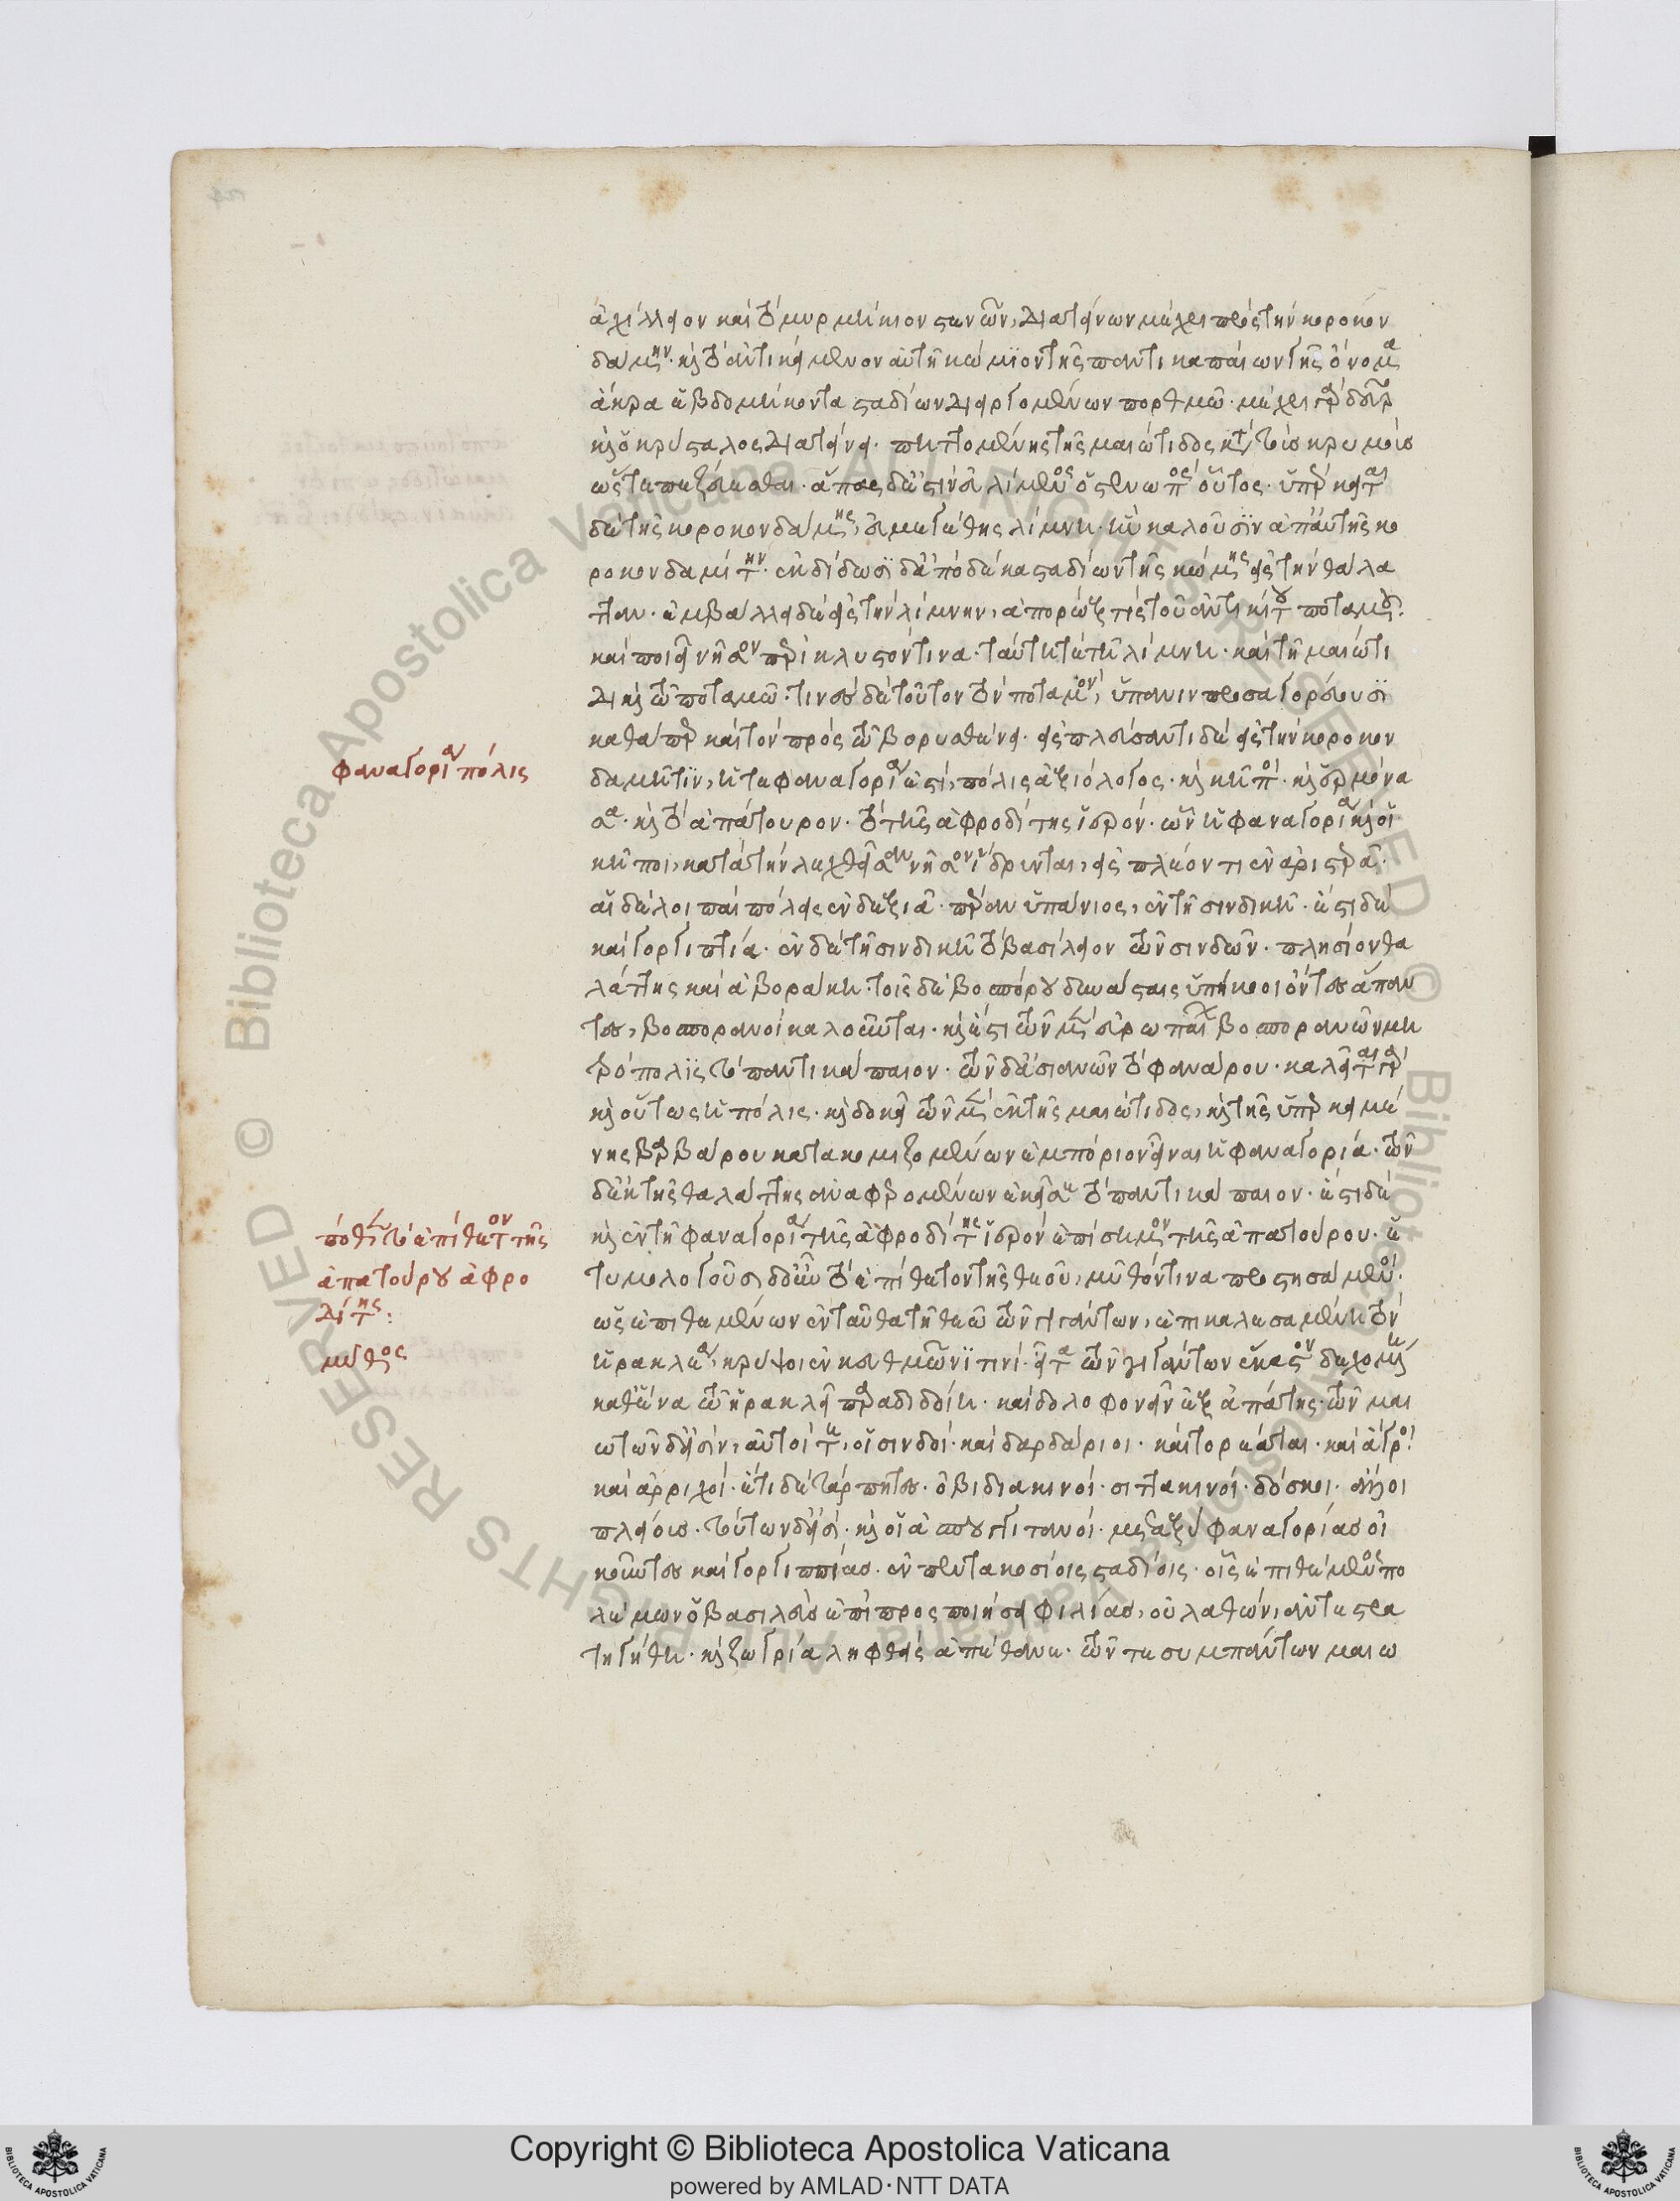 ἀχίλλειον καὶ τὸ μυρμήκιον στενῶν, διατείνων μέχρι πρὸς τὴν κοροκον
δάμην. καὶ τὸ ἀντικείμενον αὐτῆ κώμϊον τῆς παντικαπαίων γῆς ὄνομα
ἄκρα ἑβδομήκοντα σταδίων διειργομένων πορθμῶ. μέχρι γὰρ δεῦρο
καὶ ὁ κρύσταλος διατείνει. πηττομένης τῆς μαιώτιδος κατὰ τοὺς κρυμοὺς
ὥστε πεζεύεσθαι. ἅπας δ' ἐστὶν εὐλίμενος ὁ στενωπὸς οὗτος. ὑπέρκειται
δὲ τῆς κοροκονδάμης, εὐμεγέθης λίμνη. ἣν καλοῦσϊν ἀπ' αὐτῆς κο
ροκονδαμίτην. ἐκδίδωσϊ δ' ἀπὸ δέκα σταδίων τῆς κώμης εἰς τὴν θάλα
τταν. ἐμβάλλει δὲ εἰς τὴν λίμνην, ἀπορώξ τις τοῦ ἀντικείτου ποταμοῦ.
καὶ ποιεῖ νῆσον περίκλυστόν τινα. ταύτη τε τῆ λίμνη. καὶ τῆ μαιώτι
δι καὶ τῶ ποταμῶ. τινὲς δὲ τοῦτον τὸν ποταμὸν, ὕπανιν προσαγορεύουσϊ
καθάπερ καὶ τὸν πρὸς τῶ βορυσθένει. εἰσπλεύσαντι δὲ εἰς τὴν κοροκον
δαμῆτϊν, ἥ τε φαναγορία ἐστὶ, πόλις ἀξιόλογος. καὶ κῆποι. καὶ ἑρμόνα
σα. καὶ τὸ ἀπάτουρον. τὸ τῆς ἀφροδίτης ἱερόν. ὧν ἡ φαναγορία καὶ οἱ
κῆποι, κατὰ τὴν λεχθεῖσαν νῆσον ἵδρυνται, εἰσπλέοντι ἐν ἀριστερᾶ.
αἱ δὲ λοιπαὶ πόλεις ἐν δεξιᾶ. πέραν ὑπάνιος, ἐν τῆ σινδικῆ. ἔστι δὲ
καὶ γοργιπτία. ἐν δὲ τῆ σινδικῆ τὸ βασίλειον τῶν σινδῶν. πλησίον θα
λάττης καὶ ἀβοράκη. τοῖς δὲ βοσπόρου δυνάσταις ὑπήκοοι ὄντες ἅπαν
τες, βοσπορανοὶ καλοῦνται. καὶ ἔστι τῶν μὲν εὐρωπαίων βοσπορανῶν μη
τρόπολϊς τὸ παντικάπαιον. τῶν δ' ἀσιανῶν τὸ φανάρου. καλεῖται γὰρ
καὶ οὕτως ἡ πόλις. καὶ δοκεῖ τῶν μὲν ἐκ τῆς μαιώτιδος, καὶ τῆς ὑπερκειμέ
νης βαρβάρου κατακομιζομένων ἐμπόριον εἶναι ἡ φαναγορία. τῶν
δ' ἐκ τῆς θαλάττης ἀναφερομένων ἐκεῖσε τὸ παντικάπαιον. ἔστι δὲ
καὶ ἐν τῆ φαναγορία τῆς ἀφροδίτης ἱερὸν ἐπίσημον τῆς ἀπατούρου. ἐ
τυμολογοῦσι δὲ τὸ ἐπίθετον τῆς θεοῦ, μῦθόν τινα προστησάμενοι.
ὡς ἐπιθεμένων ἐνταῦθα τῆ θεῶ τῶν γιγάντων, ἐπικαλεσαμένη τὸν
ἡρακλέα, κρύψοι ἐν κευθμῶνϊ τινί. εἶτα τῶν γιγάντων ἕκαστον δεχομένη
καθ' ἕνα τῶ ἡρακλεῖ παραδιδοίη. καὶ δολοφονεῖν ἐξ ἀπάτης. τῶν μαι
ωτῶν δ' εἰσὶν, αὐτοί τε, οἱ σινδοί. καὶ δαρδάριοι. καὶ τορεάται. καὶ ἄγροι
καὶ ἀρριχοί. ἔτι δὲ τάρπητες. ὀβιδιακινοί. σιττακινοί. δόσκοι. ἄλλοι
πλείους. τούτων δ' εἰσὶ. καὶ οἱ ἀσπουργιτανοί. μεταξὺ φαναγορίας οἰ
κοῦντες καὶ γοργιππίας. ἐν πεντακοσίοις σταδίοις. οἷς ἐπιθέμενος πο
λέμων ὁ βασιλεὺς ἐπὶ προσποιήσει φιλίας, οὐ λαθὼν, ἀντεστρα
τηγήθη. καὶ ζωγρία ληφθεὶς ἀπέθανε. τῶν τε συμπάντων μαιω
φαναγορία πόλις
πόθεν τὸ ἐπίθετον τῆς
ἀπατούρου ἀφρο
δίτης:
μῦθος
Copyright © Biblioteca Apostolica Vaticana
powered by AMLAD·NTT DATA
© Biblioteca Apostolica Vaticana ALL RIGHTS RESERVED